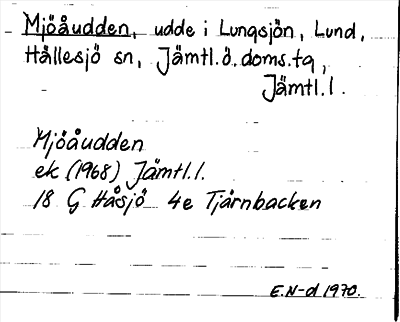 Mjöåudden, udde i Lungsjön, Lund,
Hällesjö sn, Jämtl.ö.doms.tg,
Jämtl.l.
Mjöåudden
ek (1968) Jämtl.l.
18 G Håsjö 4e Tjärnbacken
E.N-d 1970.